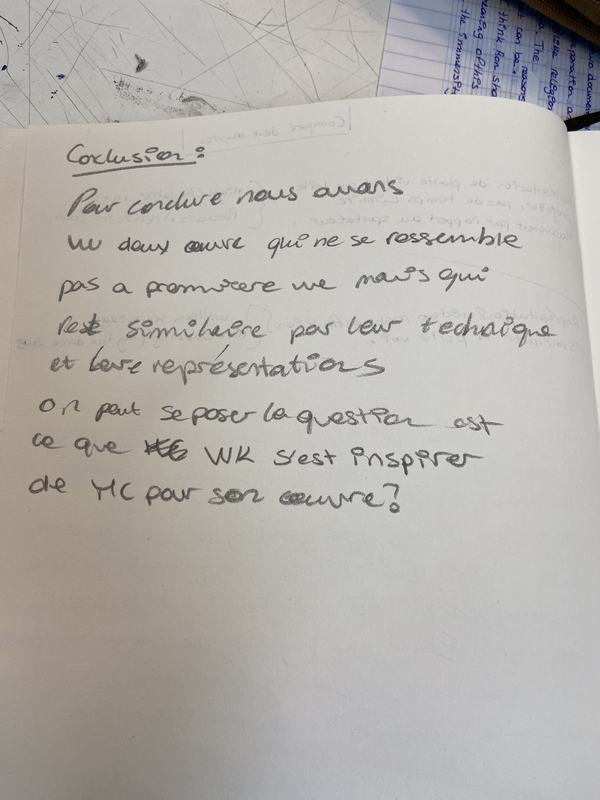 Conclusion :
Pour conclure nous avons
vu deux œuvre qui ne se ressemble
pas a premiere vue mais qui
reste similaire par leur technique
et leure représentations
On peut se poser la question est
ce que WK s'est inspirer
de MC pour son œuvre?